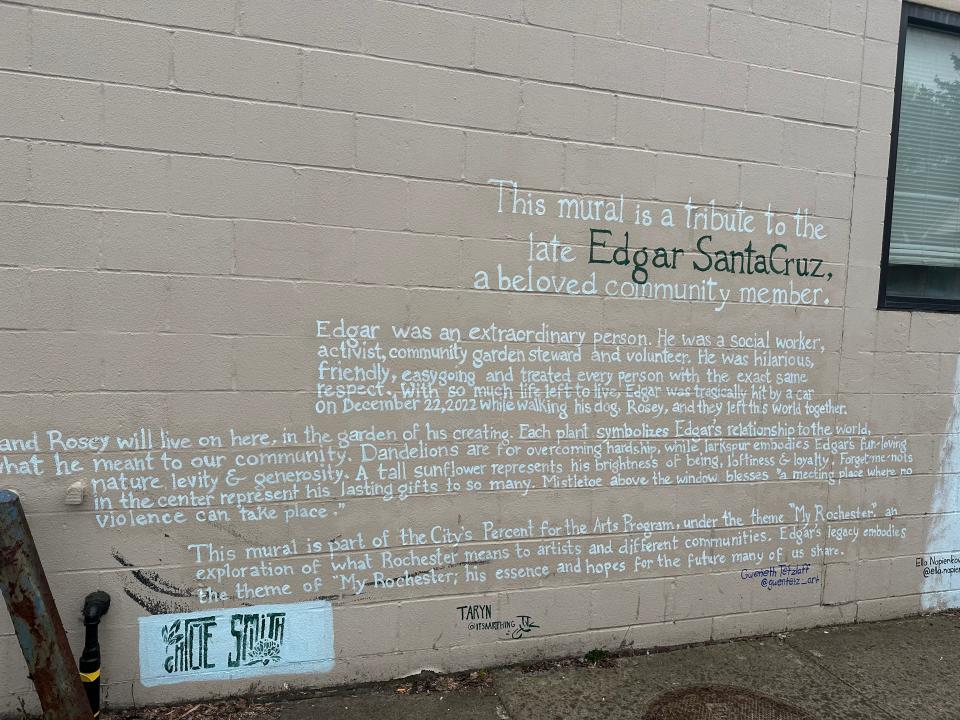 This mural is a tribute to the
late Edgar SantaCruz,
a beloved community member.
Edgar was an extraordinary person. He was a social worker,
activist, community garden steward and volunteer. He was hilarious,
friendly, easygoing and treated every person with the exact same
respect. With so much life left to live, Edgar was tragically hit by a car
on December 22, 2022 while walking his dog, Rosey, and they left this world together.
and Rosey will live on here, in the garden of his creating. Each plant symbolizes Edgar's relationship to the world,
what he meant to our community. Dandelions are for overcoming hardship, while larkspur embodies Edgar's fun-loving
nature, levity & generosity. A tall sunflower represents his brightness of being, loftiness & loyalty. Forget-me-nots
in the center represent his lasting gifts to so many. Mistletoe above the window blesses "a meeting place where no
violence can take place."
This mural is part of the City's Percent for the Arts Program, under the theme "My Rochester," an
exploration of what Rochester means to artists and different communities. Edgar's legacy embodies
the theme of "My Rochester; his essence and hopes for the future many of us share.
Gweneth Tetzlaff
@gwentetz_art
Ella Napierkow
@ella.napier
TARYN
@ITSMARTHING
SMITH